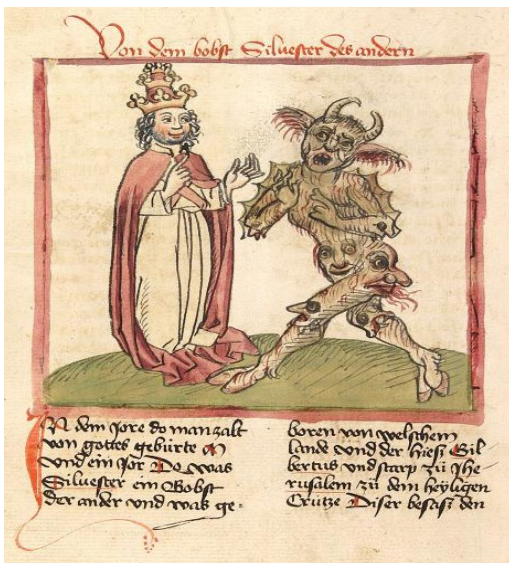 Von dem bobst Siluester des andern
IN dem Jore do man zalt
von gottes gebürte M
vnd ein Jor Do was
Siluester ein Bobst
der ander vnd was ge-
boren von welschem
lande vnd der hiesz Gil
bertus vnd starp zü Jhe
rusalem zü dem heyligen
Crütze Diser besasz den